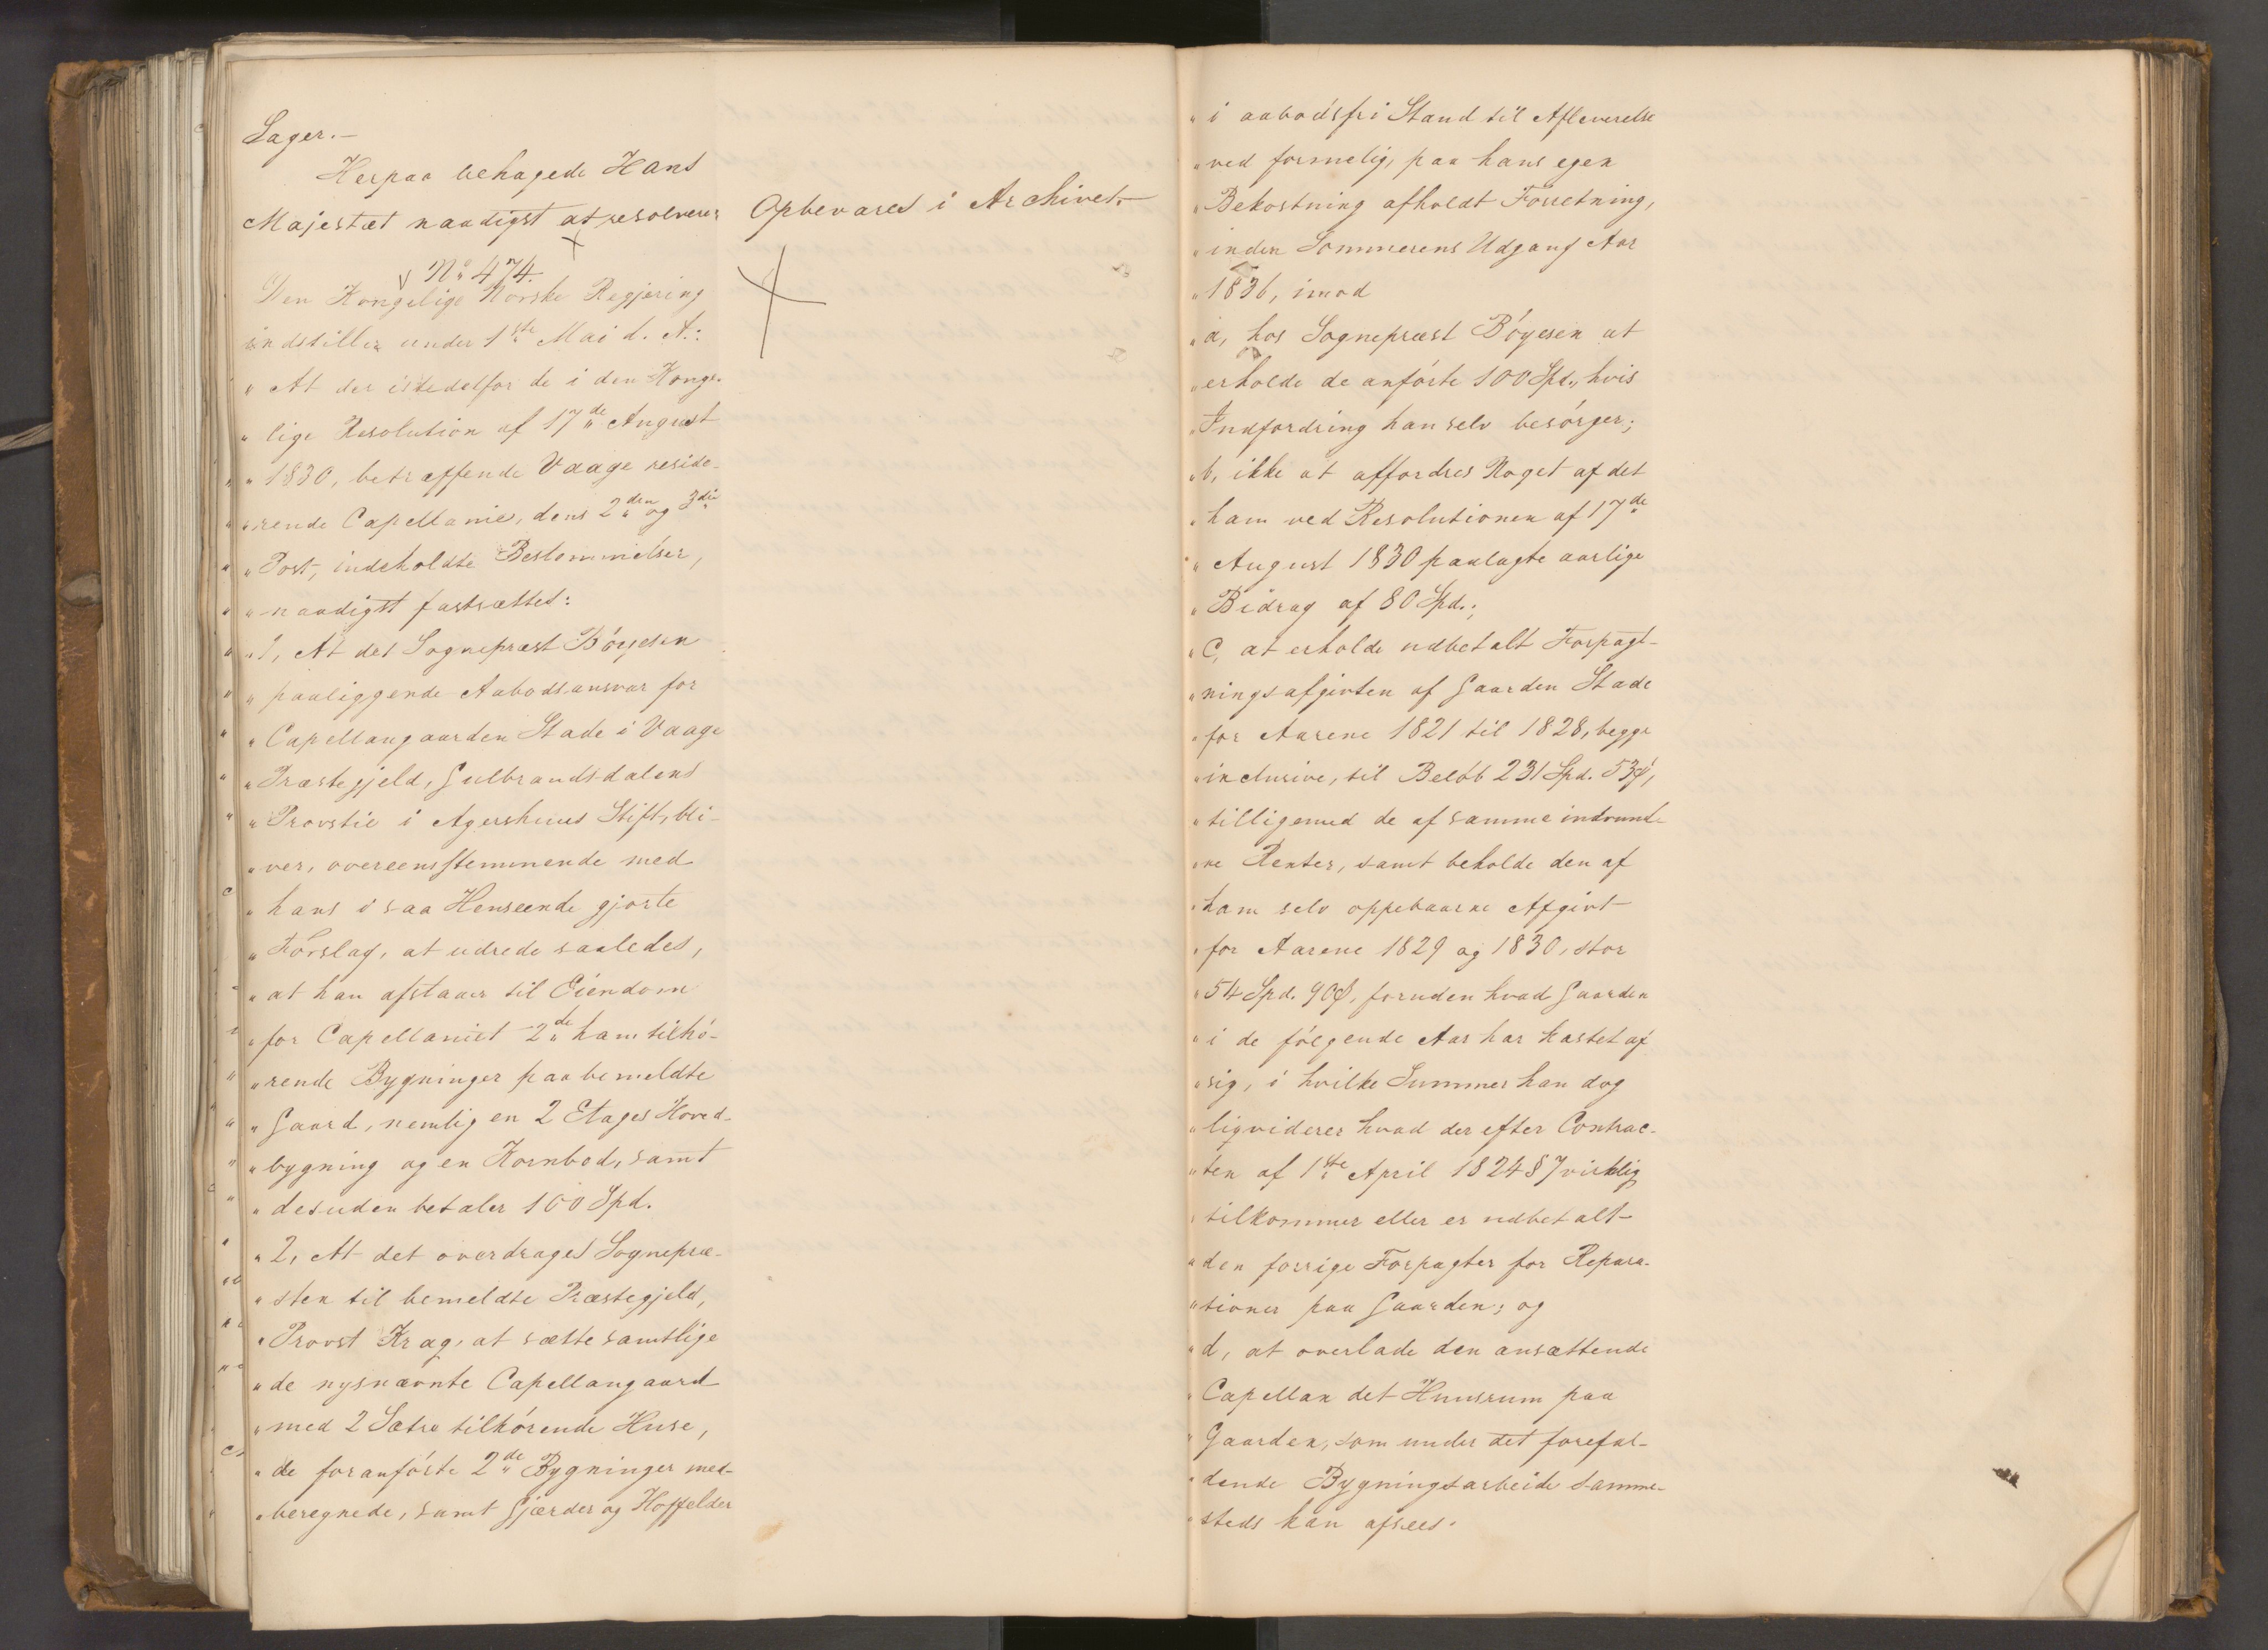 Lager.-
Herpaa behagede Hans
Majestæt naadigst at resolvere:
Opbevares i Archivet.-
No 474.
Den Kongelige Norske Regjering
indstiller under 1ste Mai d. A.:
" At der istedetfor de i den Konge-
" lige Resolution af 17de August
" 1830, betræffende Vaage reside-
" rende Capellanie, dens 2den og 3die
" Post, indeholdte Bestemmelser,
" naadigst fastsættes:
" 1, At det Sognepræst Bóyesen
" paaliggende Aabodsansvar for
" Capellangaarden Stade i Vaage
" Præstegjeld, Gulbrandsdalens
" Provstie i Agershuus Stift, bli-
" ver, overeensstemmende med
" hans i saa Henseende gjorte
" Forslag, at udrede saaledes,
" at han afstaaer til Eiendom
" for Capellaniet 2de ham tilhó-
" rende Bygninger paa bemeldte
" Gaard, nemlig en 2 Etages Hoved-
" bygning og en Kornbod, samt
" desuden betaler 100 Spd.
" 2, At det overdrages Sognepræ-
" sten til bemeldte Præstegjeld,
" Provst Krag, at sætte samtlige
" de nysnævnte Capellangaard
" med 2 Sætre tilhórende Huse,
" de foranfórte 2de Bygninger med-
" beregnede, samt Gjærder og
" i aabodsfri Stand til Afleverelse
" ved formelig, paa hans egen
" Bekostning afholdt Forretning,
" inden Sommerens Udgang Aar
" 1836, imod
" a, hos Sognepræst Bóyesen at
" erholde de anfórte 100 Spd., hvis
" Indfordring han selv besórger;
" b, ikke at affordres Noget af det
" ham ved Resolutionen af 17de
" August 1830 paalagte aarlige
" Bidrag af 80 Spd.;
" c, at erholde udbetalt Forpagt-
" ningsafgivten af Gaarden Stade
" for Aarene 1821 til 1828, begge
" inclusive, til Belób 231 Spd. 53ß,
" tilligemed de af samme indvund-
" ne Renter, samt beholde den af
" ham selv oppebaarne Afgivt
" for Aarene 1829 og 1830, stor
" 54 Spd. 90ß, foruden hvad Gaarden
" i de fólgende Aar har kastet af
" sig, i hvilke Summer han dog
" liqviderer hvad der efter Contrac-
" ten af 1ste April 1824 § 7 virkelig
" tilkommer eller er udbetalt
" den forrige Forpagter for Repara-
" tioner paa Gaarden; og
" d, at overlade den ansættende
" Capellan det Huusrum paa
" Gaarden, som under det forefal-
" dende Bygningsarbeide samme-
" steds kan afsees.